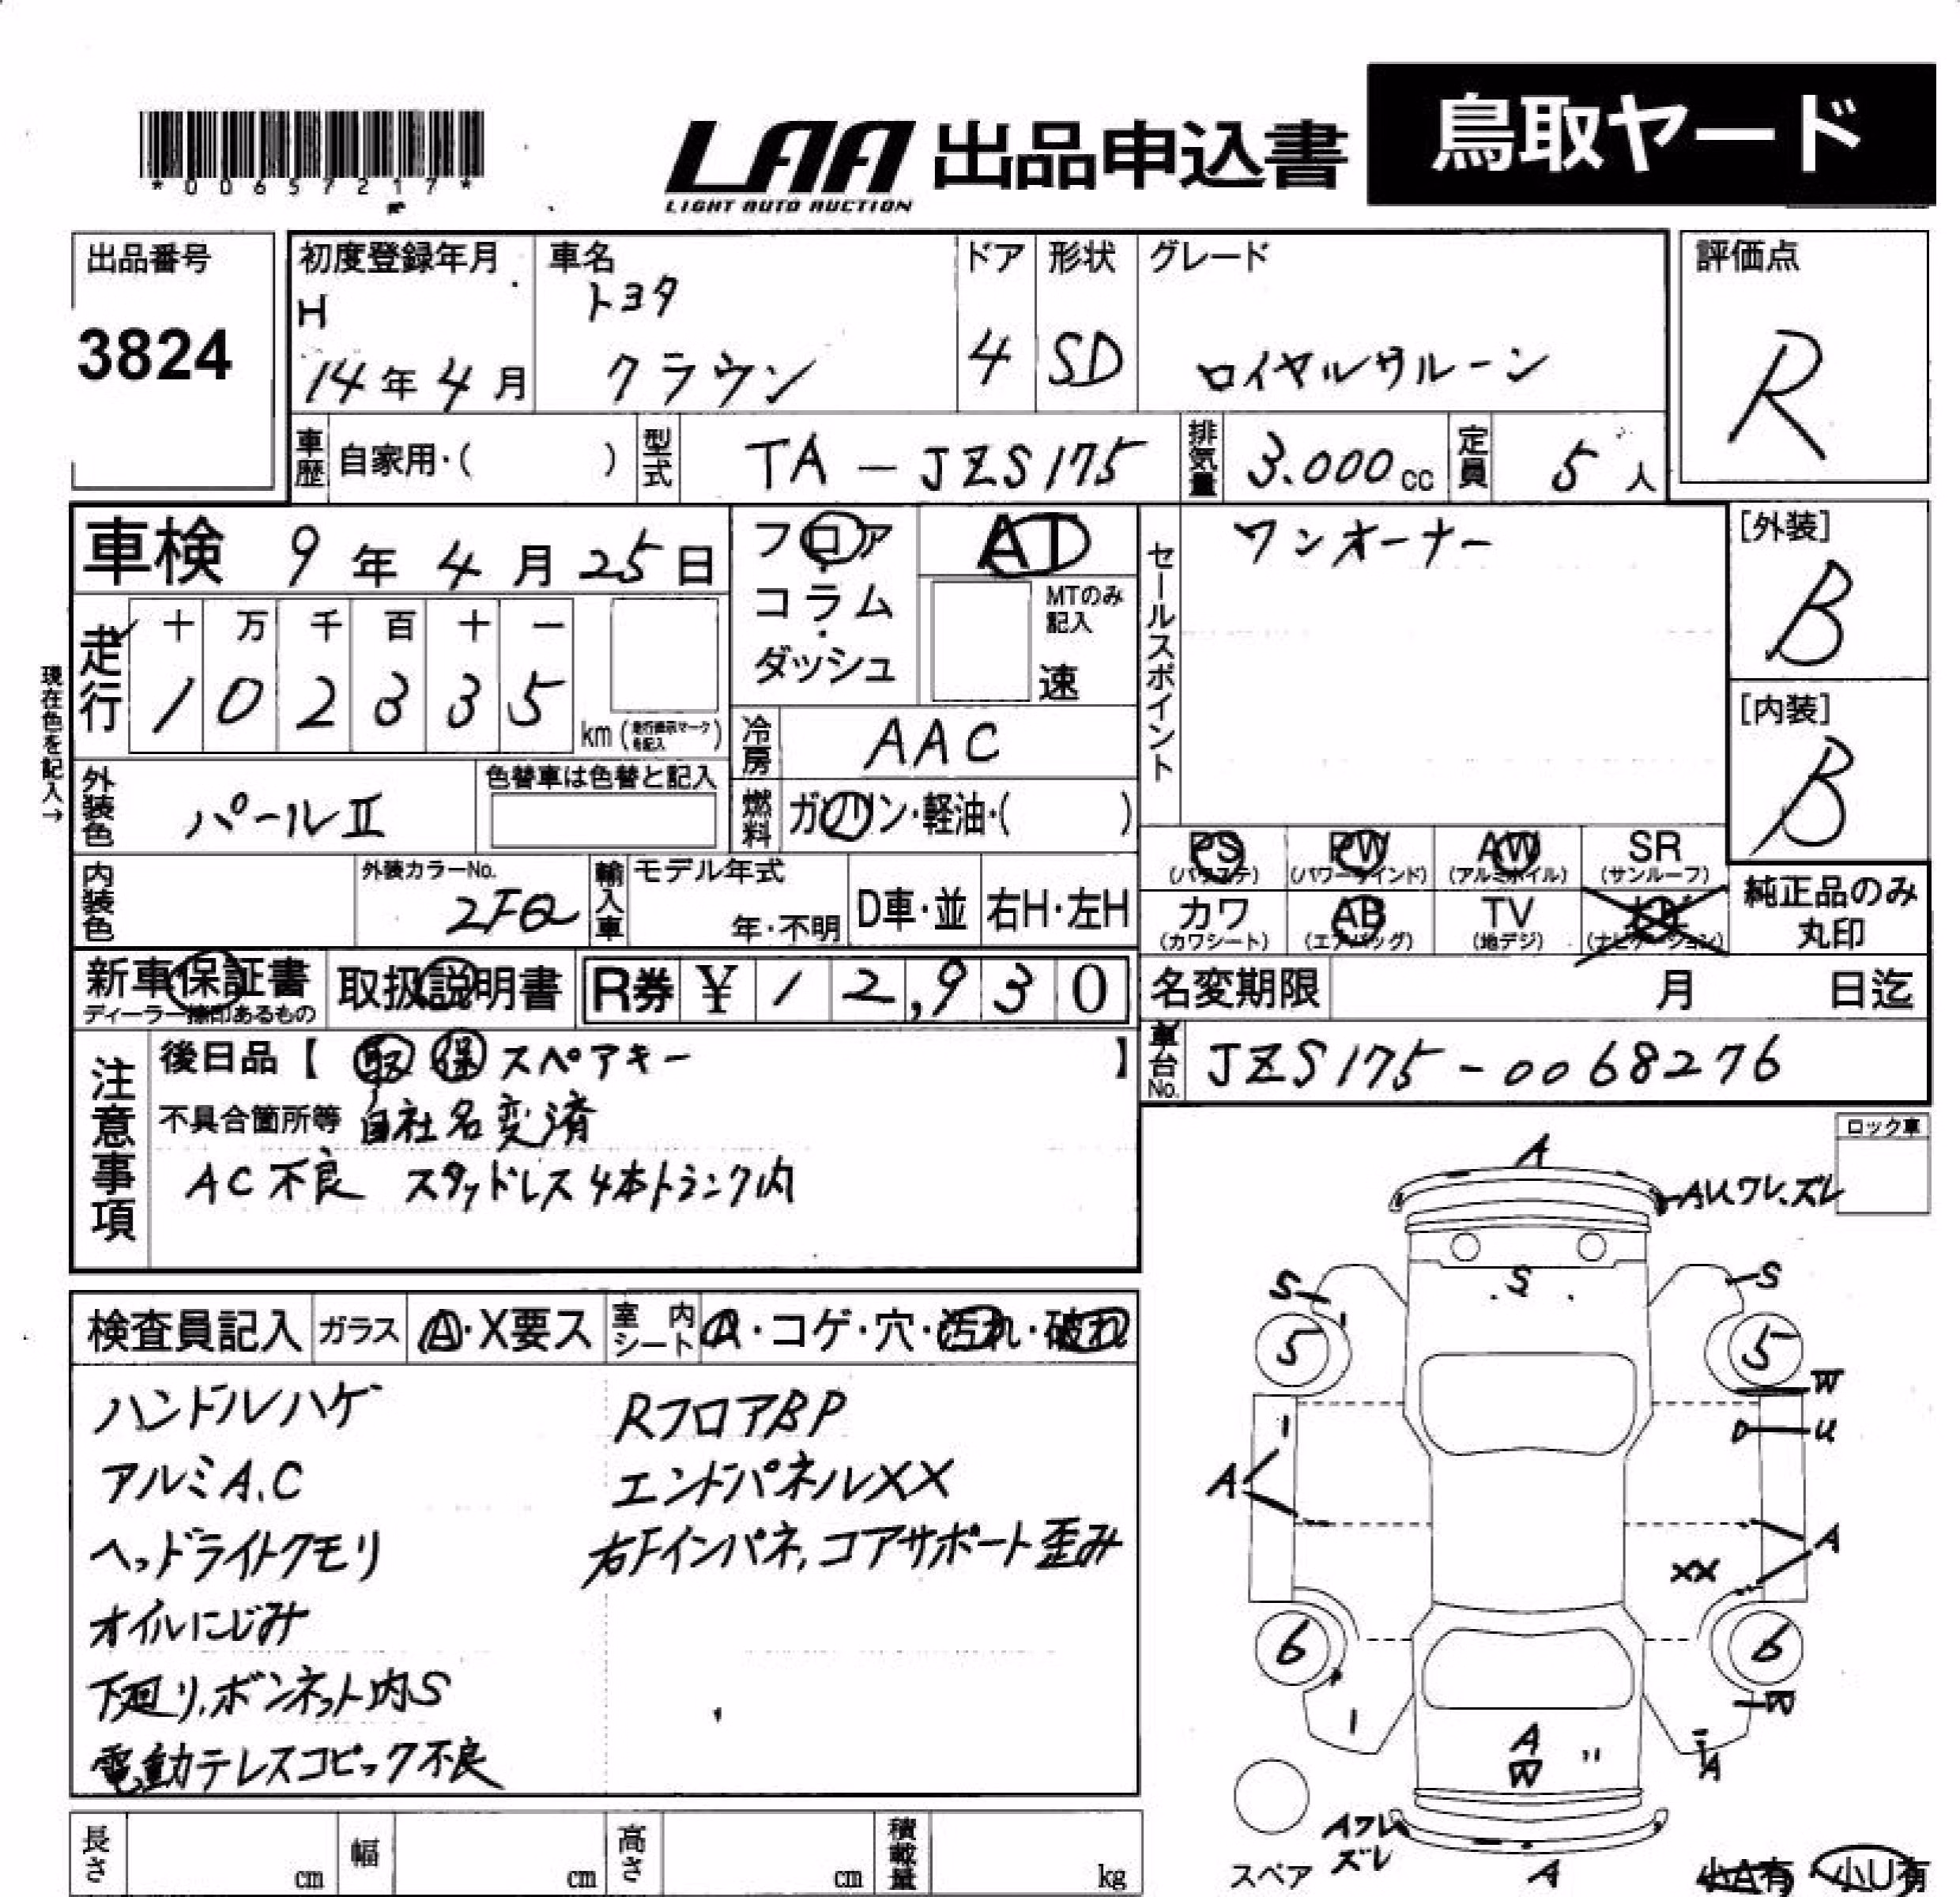 *00657217*
LAA 出品申込書 鳥取ヤード
LIGHT AUTO AUCTION
出品番号
3824
初度登録年月
H
14年4月
車名
トヨタ
クラウン
ドア
4
形状
SD
グレード
ロイヤルサルーン
評価点
R
車歴 自家用・( )
型式 TA-JZS175
排気量 3.000cc
定員 5人
車検 9年4月25日
フロア・コラム・ダッシュ
AT
MTのみ記入
速
セールスポイント
ワンオーナー
[外装]
B
[内装]
B
現在色を記入→
走行
十 万 千 百 十 一
1 0 2 3 3 5
km(走行表示マークを記入)
冷房 AAC
外装色 パールⅡ
色替車は色替と記入
燃料 ガソリン・軽油・( )
PS (パワステ)
PW (パワーウインド)
AW (アルミホイル)
SR (サンルーフ)
カワ (カワシート)
AB (エアバッグ)
TV (地デジ)
(ナビゲーション)
純正品のみ
丸印
内装色
外装カラーNo.
2FQ
輸入車
モデル年式
年・不明
D車・並
右H・左H
新車保証書
ディーラー捺印あるもの
取扱説明書
R券 ¥12,930
名変期限 月 日迄
車台No. JZS175-0068276
注意事項
後日品【 取 保 スペアキー 】
不具合箇所等 自社名変済
AC不良 スタッドレス4本トランク内
ロック車
検査員記入
ガラス A・X要ス
室内シート A・コゲ・穴・汚れ・破れ
ハンドルハゲ
アルミA.C
ヘッドライトクモリ
オイルにじみ
下廻り、ボンネット内S
電動テレスコピック不良
RフロアBP
エンドパネルXX
右Fインパネ、コアサポート歪み
A
AU,ワレ、ズレ
S
S
S
5
5
W
U
A
A
XX
6
6
W
A
W
A
Aワレ
ズレ
A
スペア
小A有
小U有
長さ cm
幅 cm
高さ cm
積載量 kg